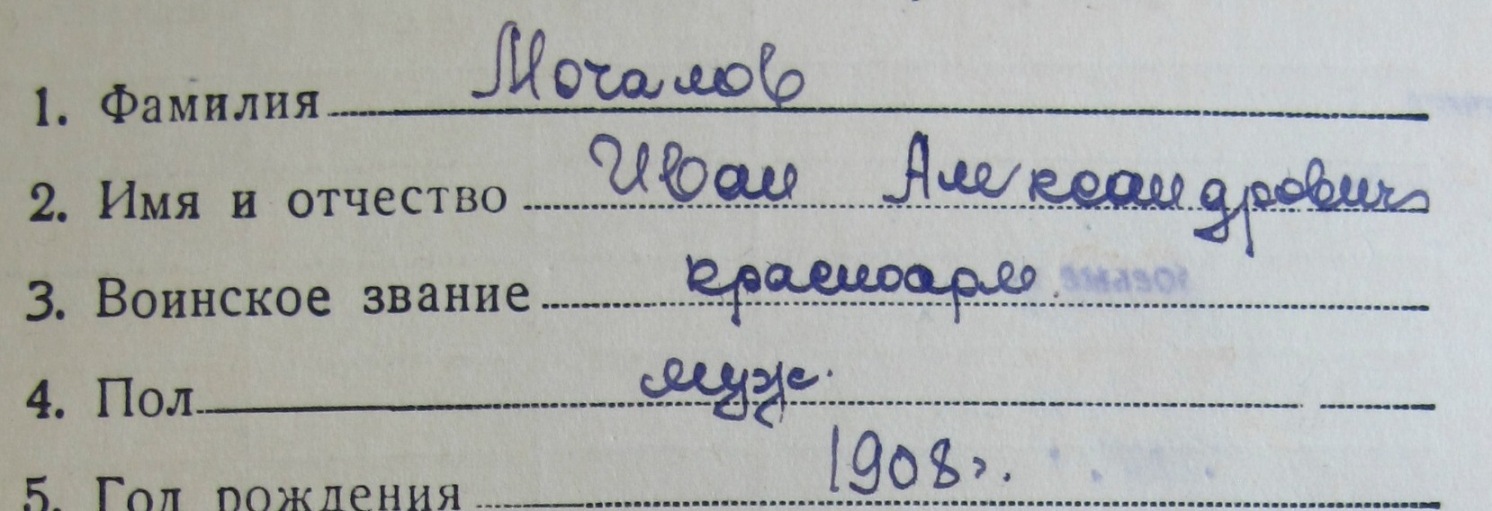 1. Фамилия Мочалов
2. Имя и отчество Иван Александрович
3. Воинское звание красноарм.
4. Пол муж.
5. Год рождения 1908 г.